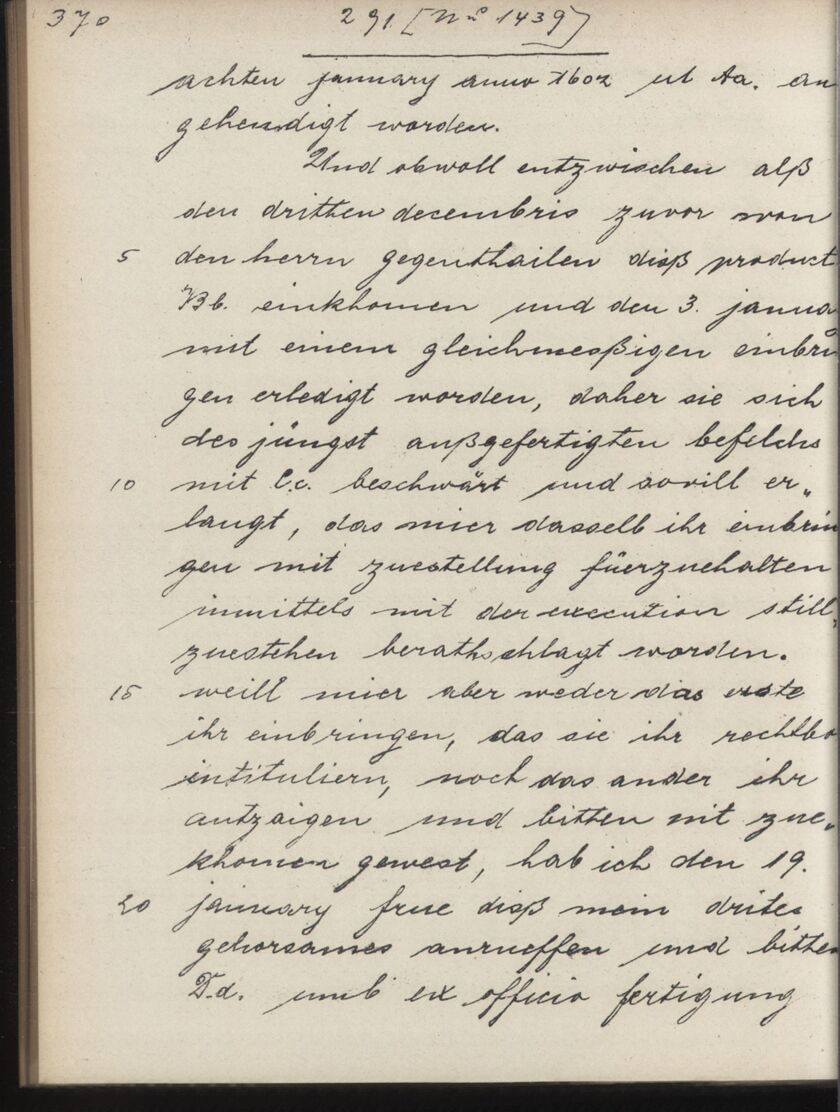 370
291. [No 1439]
achten january anno 1602 ut Aa. an
gehendigt worden.
Und obwoll entzwischen alß
den dritten decembris zuvor von
5 den herrn gegenthailen diß product
Bb. einkhomen und den 3. janua
mit einem gleichmeßigen einbrin
gen erledigt worden, daher sie sich
des jüngst außgefertigten befelchs
10 mit C.c. beschwärt und sovill er„
langt, das mier dasselb ihr einbrin
gen mit zuestellung füerzuehalten
inmittels mit der execution still„
zuestehen berathschlagt worden.
15 weill mier aber weder das erste
ihr einbringen, das sie ihr rechtbo
intituliern, noch das ander ihr
antzaigen und bitten nit zue„
khomen gewest, hab ich den 19.
20 january frue diß mein drites
gehorsames anrueffen und bitten
D.d. umb ex officio fertigung